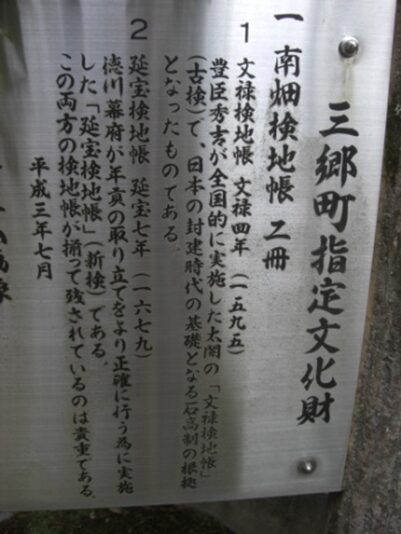 三郷町指定文化財
一 南畑検地帳 二冊
1 文禄検地帳 文禄四年 (一五九五)
豊臣秀吉が全国的に実施した太閤の「文禄検地帳」
(古検)で、日本の封建時代の基礎となる石高制の根拠
となったものである。
2 延宝検地帳 延宝七年 (一六七九)
徳川幕府が年貢の取り立てをより正確に行う為に実施
した「延宝検地帳」(新検)である。
この両方の検地帳が揃って残されているのは貴重である。
平成三年七月